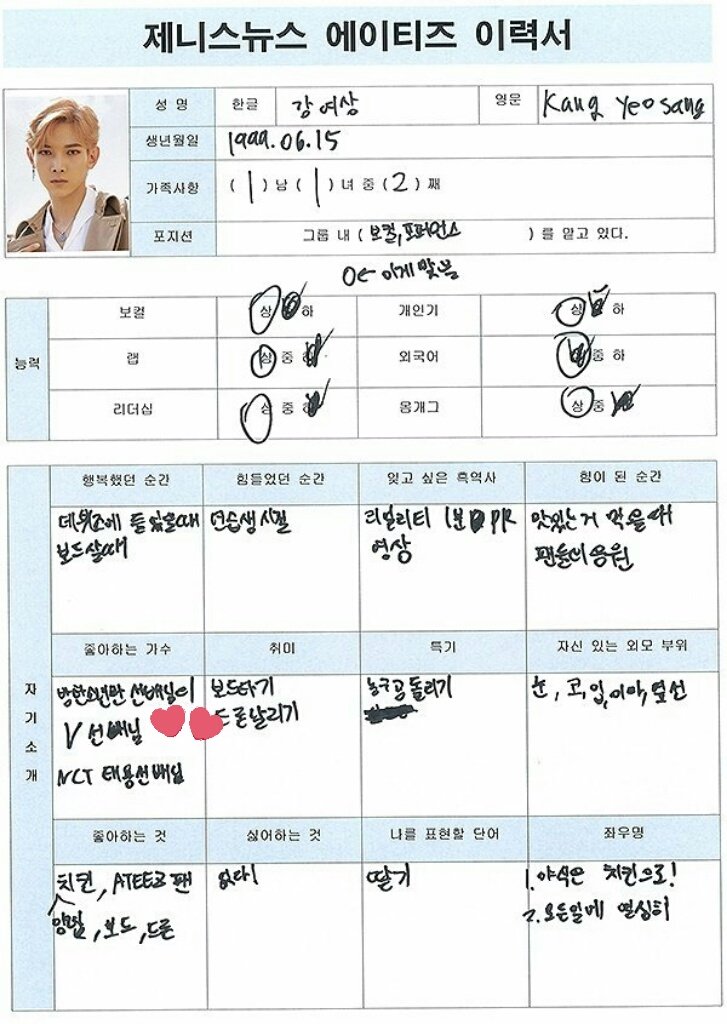 제니스뉴스 에이티즈 이력서
성 명 한글 강여상 영문 Kang Yeosang
생년월일 1999.06.15
가족사항 (1)남(1)녀 중(2)째
포지션 그룹 내 (보컬,포퍼먼스 )를 맡고 있다.
O← 이게 맞음
능력
보컬 상 하 개인기 상 하
랩 상 중 외국어 중 하
리더십 상 중 하 몸개그 상 중
자기소개
행복했던 순간 힘들었던 순간 잊고 싶은 흑역사 힘이 된 순간
데뷔조에 들었을때 연습생시절 리얼리티 1분 PR 맛있는거 먹을때
보드살때 영상 팬들의응원
좋아하는 가수 취미 특기 자신 있는 외모 부위
방탄소년단 선배님의 보드타기 농구공돌리기 눈, 코, 입, 이마, 옆선
V 선배님 드론날리기
NCT 태용선배님
좋아하는 것 싫어하는 것 나를 표현할 단어 좌우명
치킨, ATEEZ 팬 없다! 딸기 1. 야식은 치킨으로!
양말, 보드, 드론 2. 모든일에 열심히